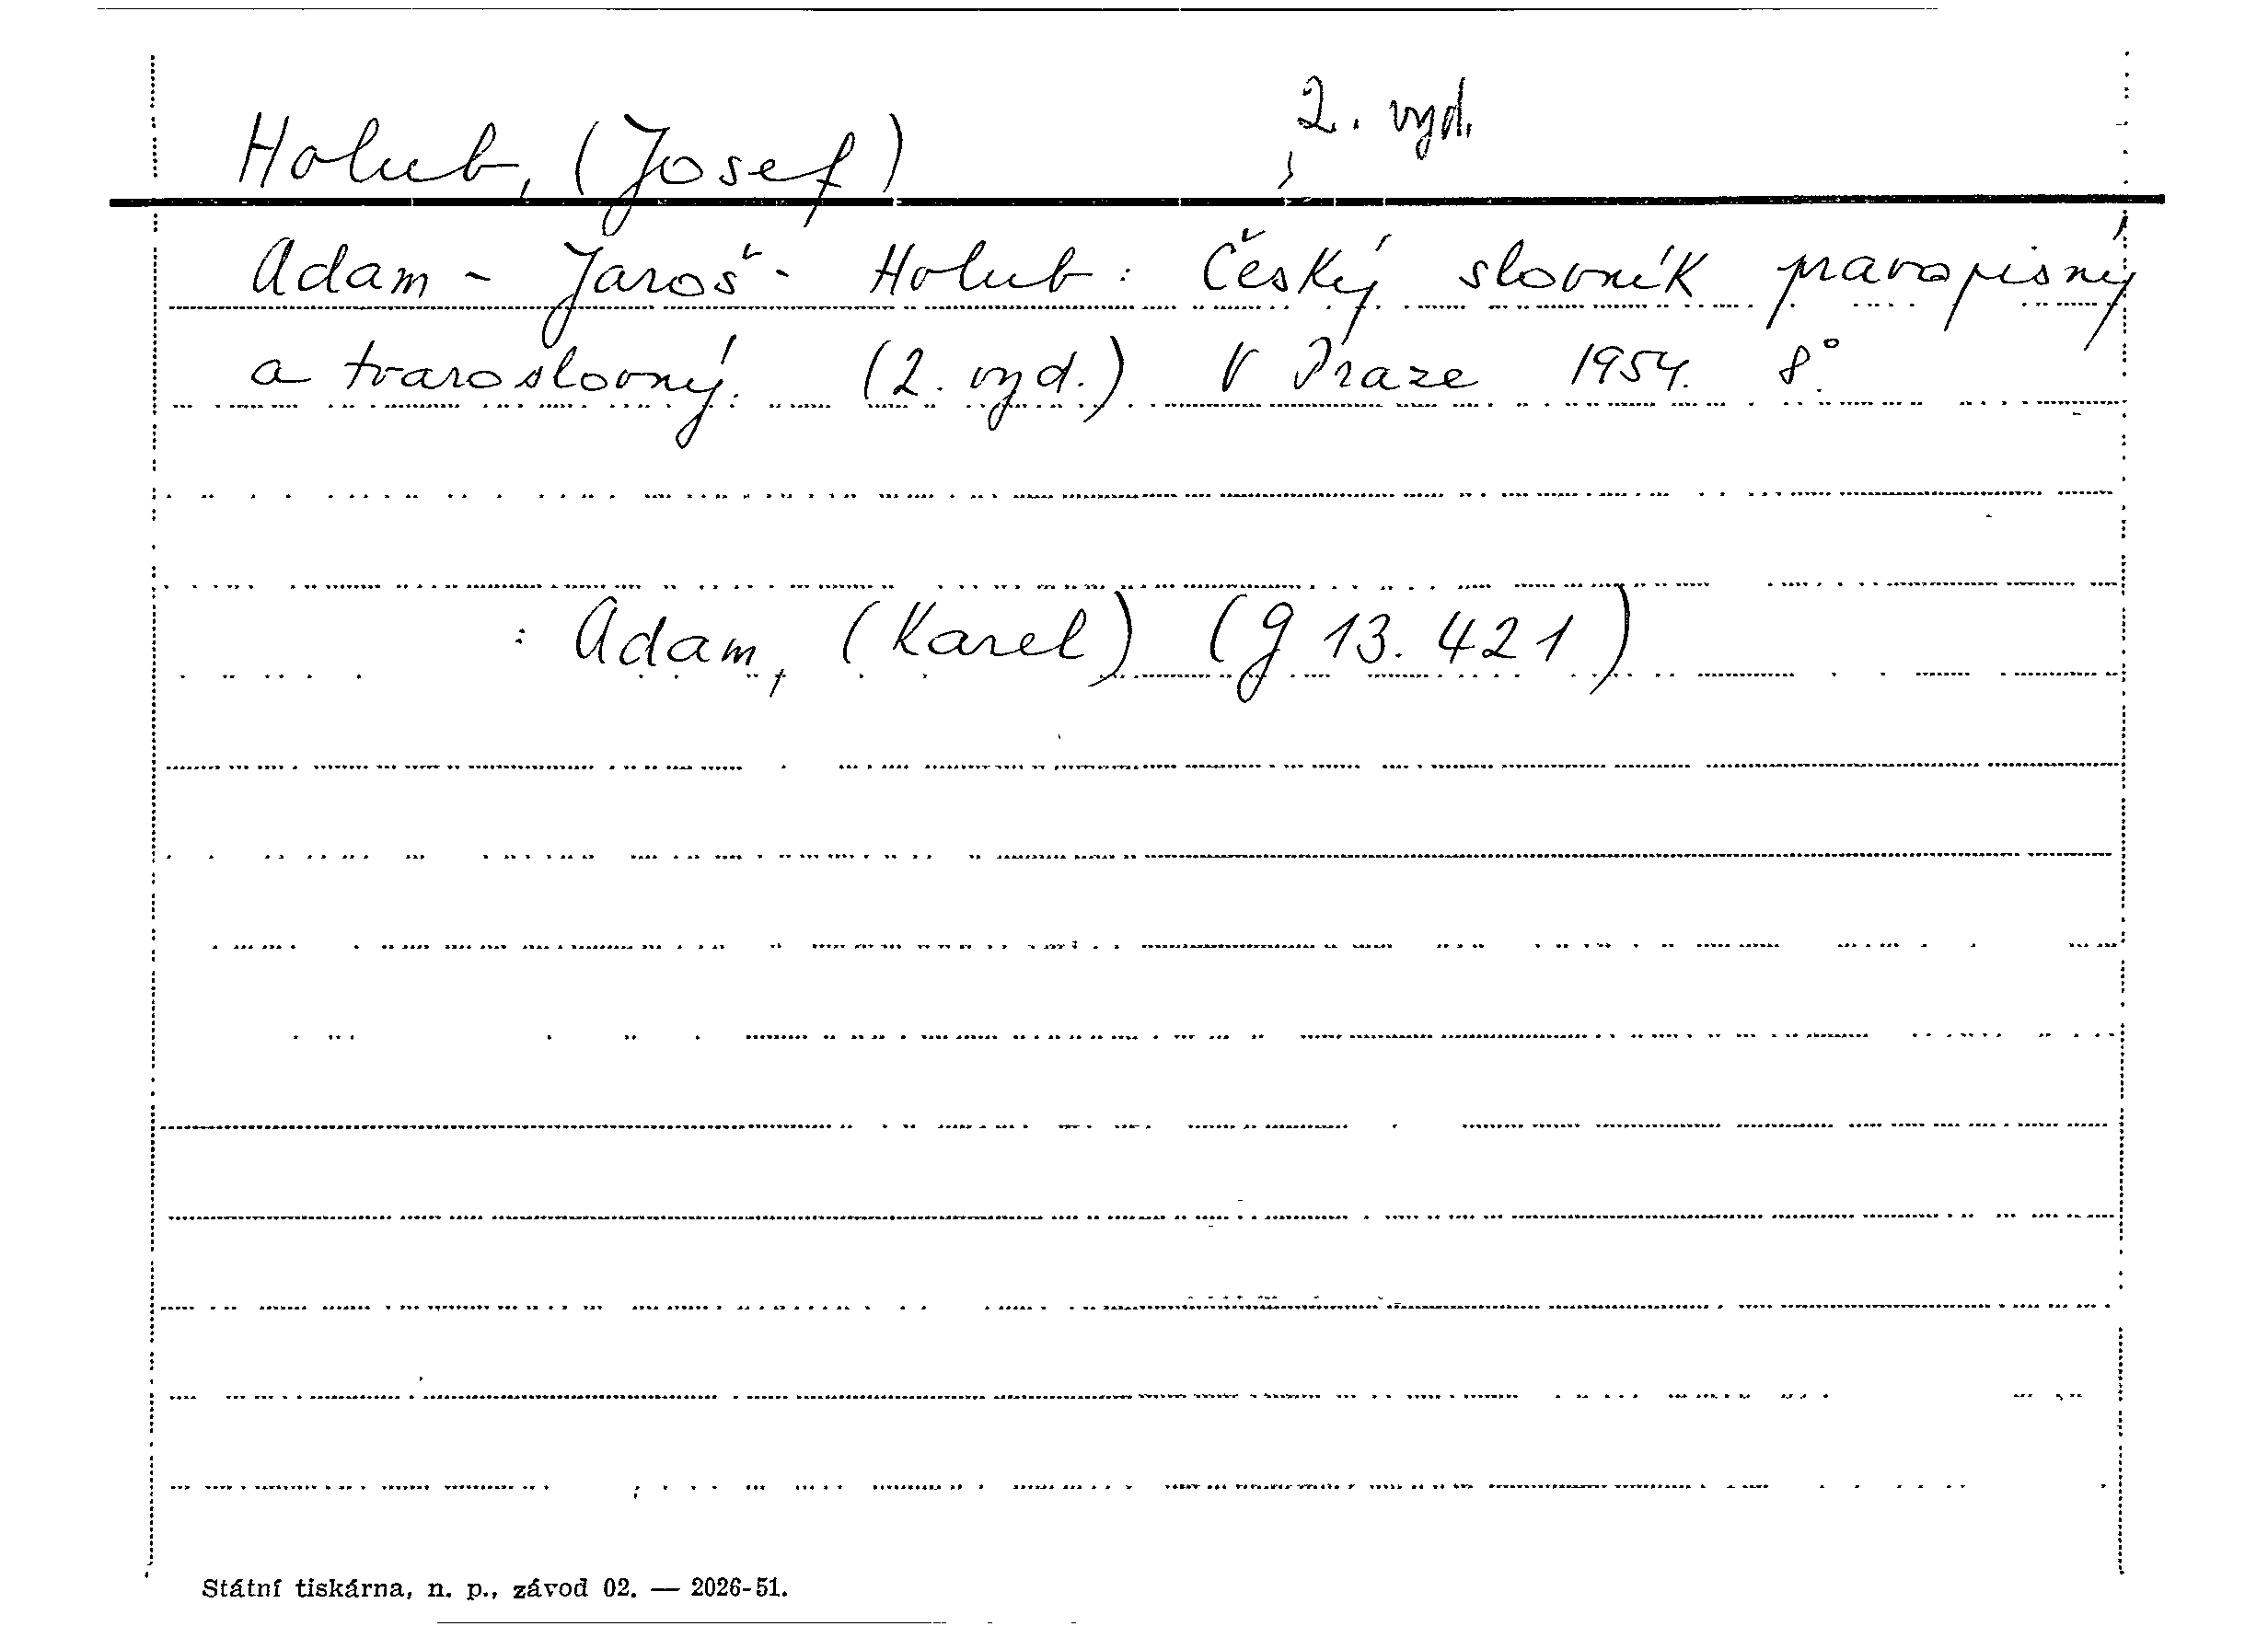 2. vyd.
Holub, (Josef)
Adam - Jaroš - Holub: Český slovník pravopisný
a tvaroslovný. (2. vyd.) V Praze 1954. 8°.
: Adam, (Karel) (g 13.421)
Státní tiskárna, n. p., závod 02. — 2026-51.